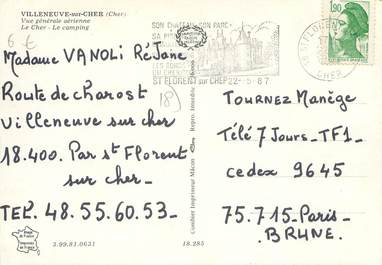 VILLENEUVE-sur-CHER (Cher)
Vue générale aérienne
Le Cher - Le camping
6 €
Madame VANOLI Réjane
Route de charost
Villeneuve sur cher
18.400. Par st Florent
sur cher_
TEL. 48.55.60.53_
18
SON CHATEAU SON PARC
ST FLORENT SUR CHER 22-5.87
ST FLORENT
CHER
1,90
Combier Imprimeur Mâcon
Repro. Interdite
Tournez Manège
Télé 7 Jours_TF1_
cedex 9645
75.715_Paris_
BRUNE.
3.99.81.0631
18.285